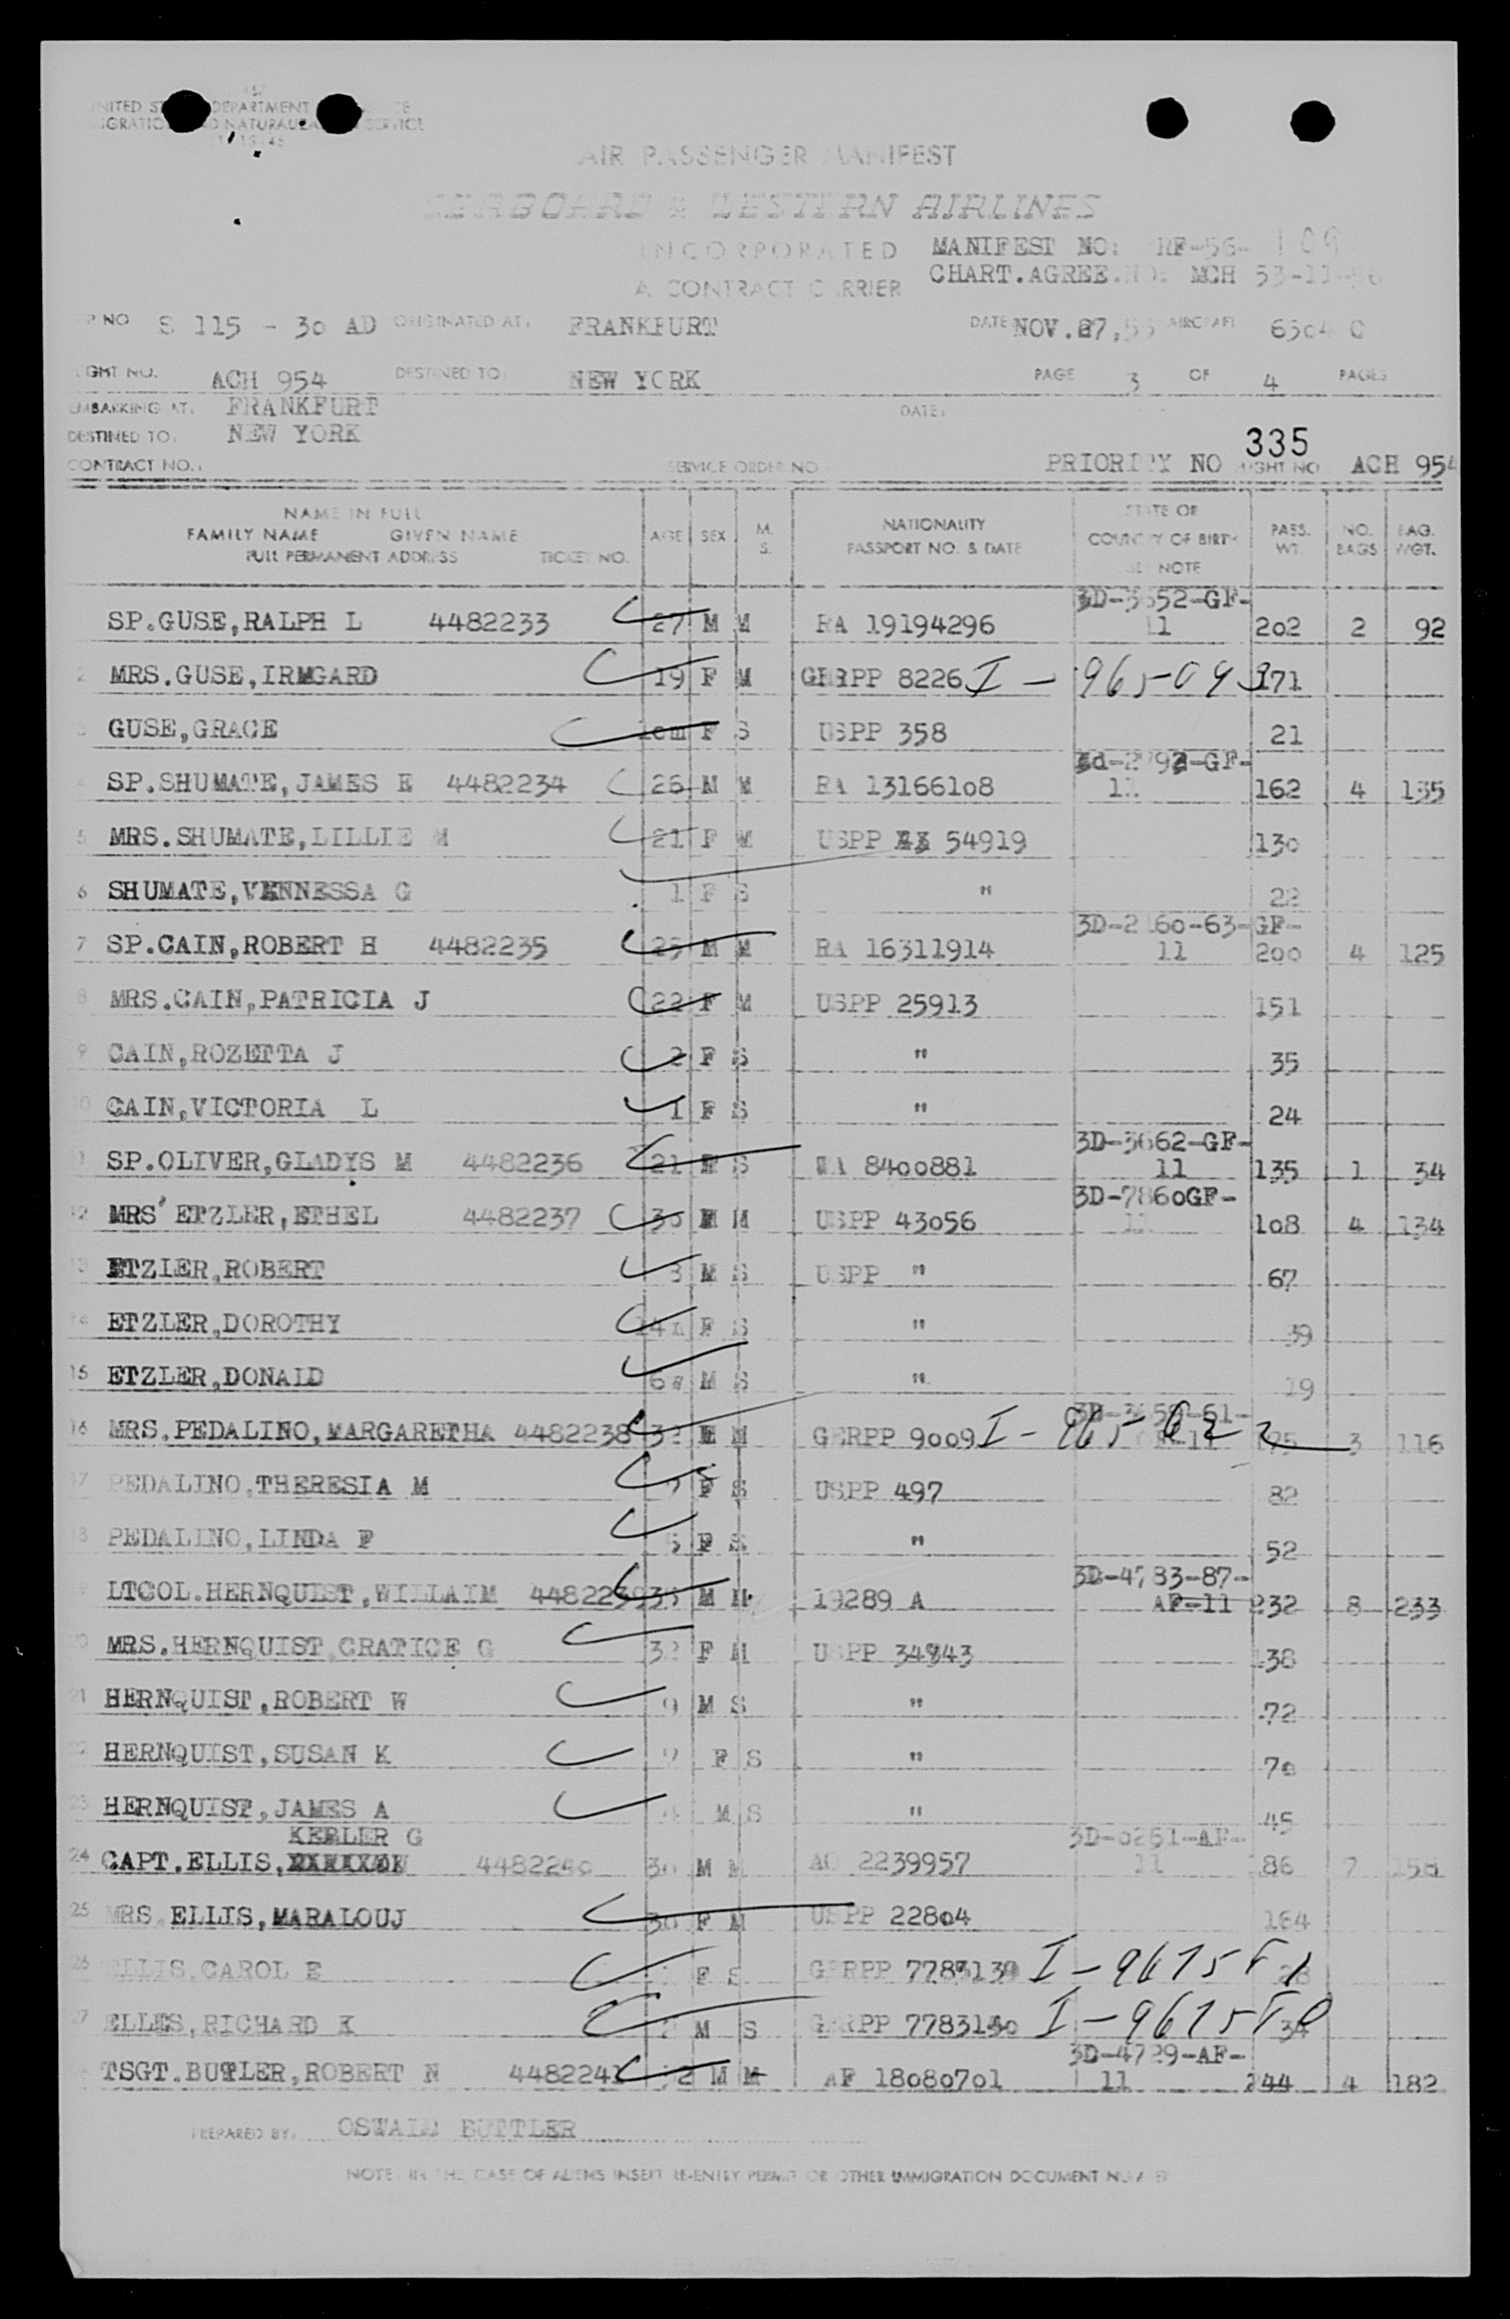 UNITED ST DEPARTMENT
NATURALIZA SERVICE
AIR PASSENGER MANIFEST
SEABOARD & WESTERN AIRLINES
INCORPORATED MANIFEST NO: RF-56- 109
A CONTRACT CARRIER CHART.AGREE.NO: MCH 53-11-56
NO S 115 - 30 AD ORIGINATED AT: FRANKFURT DATE NOV.27,55 AIRCRAFT 6504 C
GHT NO. ACH 954 DESTINED TO: NEW YORK PAGE 3 OF 4 PAGES
EMBARKING AT: FRANKFURT DATE:
DESTINED TO: NEW YORK
335
CONTRACT NO.: SERVICE ORDER NO PRIORITY NO GHT NO ACH 954
NAME IN FULL
FAMILY NAME GIVEN NAME
FULL PERMANENT ADDRESS TICKET NO. AGE SEX M. S. NATIONALITY PASSPORT NO. & DATE STATE OR COUNTRY OF BIRTH SEE NOTE PASS. WT. NO. BAGS BAG. WGT.
3D-3652-GF-
SP.GUSE,RALPH L 4482233 27 M M RA 19194296 11 202 2 92
2 MRS.GUSE,IRMGARD 19 F M GERPP 8226 I - 965-093 171
3 GUSE,GRACE 10m F S USPP 358 21
SP.SHUMATE,JAMES E 4482234 26 M M RA 13166108 11 162 4 135
5 MRS.SHUMATE,LILLIE M 21 F M USPP 54919 130
6 SHUMATE,VENNESSA G 1 F S " 22
3D-2160-63-GF-
7 SP.CAIN,ROBERT H 4482235 25 M M RA 16311914 11 200 4 125
8 MRS.CAIN,PATRICIA J 22 F M USPP 25913 151
9 CAIN,ROZETTA J 2 F S " 35
10 CAIN,VICTORIA L 1 F S " 24
3D-3662-GF-
SP.OLIVER,GLADYS M 4482236 21 F S WA 8400881 11 135 1 34
3D-7860GF-
12 MRS ETZLER,ETHEL 4482237 30 F M USPP 43056 11 108 4 134
13 ETZLER,ROBERT 8 M S USPP " 67
14 ETZLER,DOROTHY F S " 39
15 ETZLER,DONALD M S " 19
16 MRS.PEDALINO,MARGARETHA 4482238 32 F M GERPP 9009 I - 965-622 3 116
17 PEDALINO,THERESIA M 7 F S USPP 497 82
18 PEDALINO,LINDA F 5 F S " 52
3D-4783-87-
LTCOL.HERNQUIST,WILLAIM 4482239 M M 19289 A AF-11 232 8 233
20 MRS.HERNQUIST,CRATICE G 32 F M USPP 34843 138
21 HERNQUIST,ROBERT W 9 M S " 72
22 HERNQUIST,SUSAN K F S " 70
23 HERNQUIST,JAMES A M S " 45
KEELER G 3D-6251-AF-
24 CAPT.ELLIS, 4482240 30 M M AO 2239957 11 86 7 158
25 MRS.ELLIS,MARALOUJ 30 F M USPP 22804 164
26 ELLIS,CAROL E F S GERPP 7783139 I-9675F1 28
27 ELLIS,RICHARD K 2 M S GERPP 7783140 I-9675F0 34
3D-4729-AF-
TSGT.BUTLER,ROBERT N 4482241 M M AF 18080701 11 244 4 182
PREPARED BY: OSWALD BUTTLER
NOTE: IN THE CASE OF ALIENS INSERT RE-ENTRY PERMIT OR OTHER IMMIGRATION DOCUMENT NUMBER